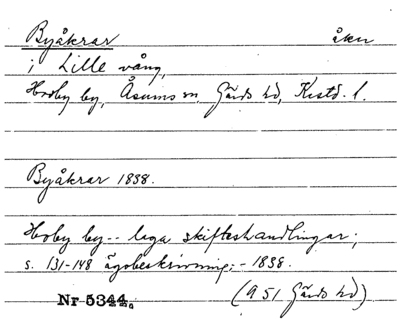 Byåkrar åker
i Lille vång,
Hoby by, Åsums sn, Gärds hd, Kristd. l.
Byåkrar 1838.
Hoby by -- laga skifteshandlingar;
s. 131-148 ägobeskrivning; - 1838.
Nr 5344. (951 Gärds hd)